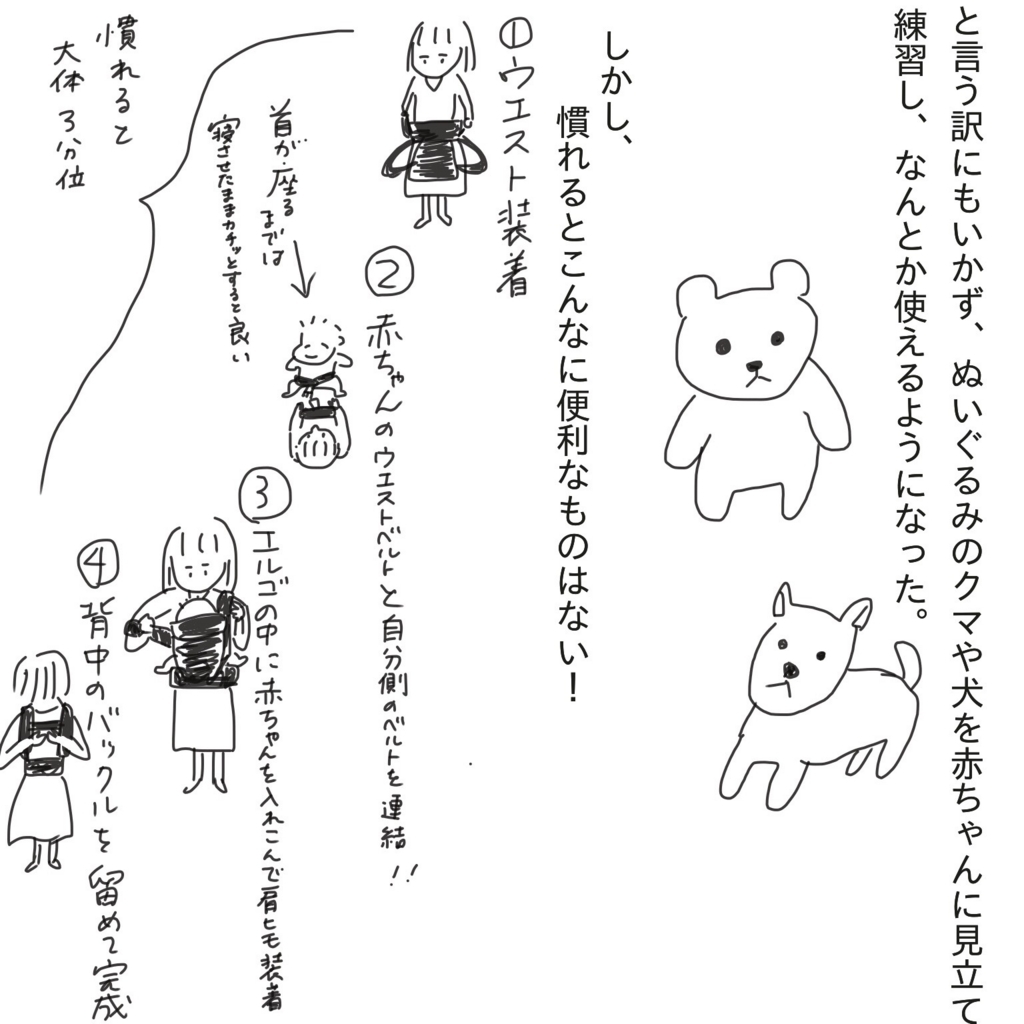 と言う訳にもいかず、ぬいぐるみのクマや犬を赤ちゃんに見立て
練習し、なんとか使えるようになった。
しかし、
慣れるとこんなに便利なものはない！
①ウエスト装着
②赤ちゃんのウエストベルトと自分側のベルトを連結!!
首が座るまでは
寝させたままカチッとすると良い
③エルゴの中に赤ちゃんを入れこんで肩ヒモ装着
④背中のバックルを留めて完成
慣れると
大体3分位